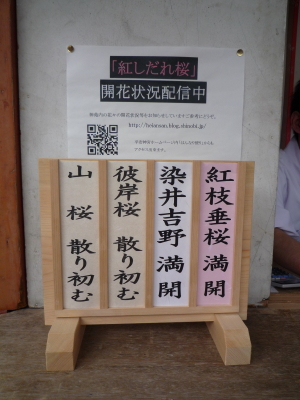 「紅しだれ桜」
開花状況配信中
http://heiansan.blog.shinobi.jp/
紅枝垂桜 満開
染井吉野 満開
彼岸桜 散り初む
山桜 散り初む